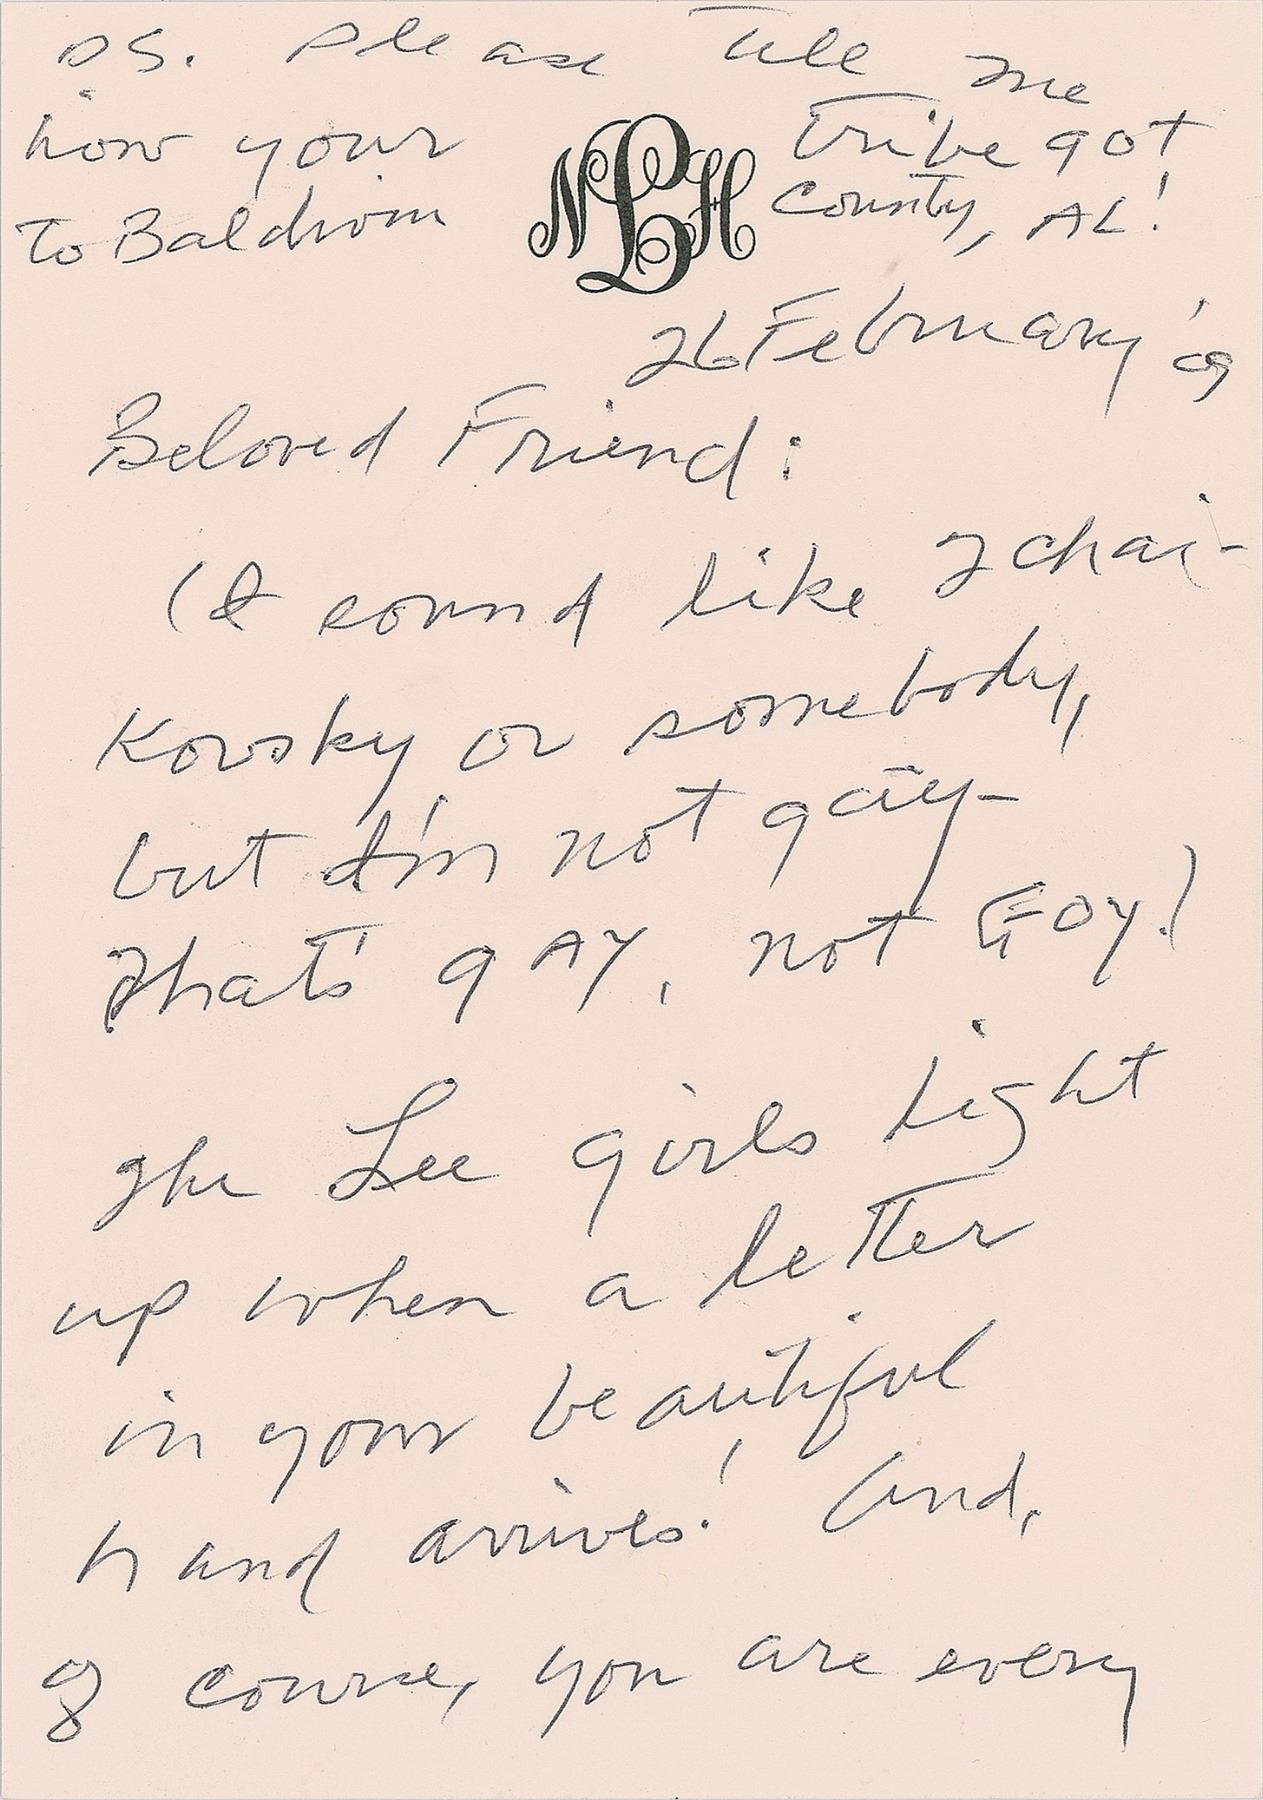 PS. Please tell me
how your tribe got
to Baldwin County, AL!
NLH
26 February '09
Beloved Friend:
(I sound like Tchai-
kovsky or somebody,
but I'm not gay-
That's gAY, not GOY!)
The Lee girls light
up when a letter
in your beautiful
hand arrives! And,
of course, you are every